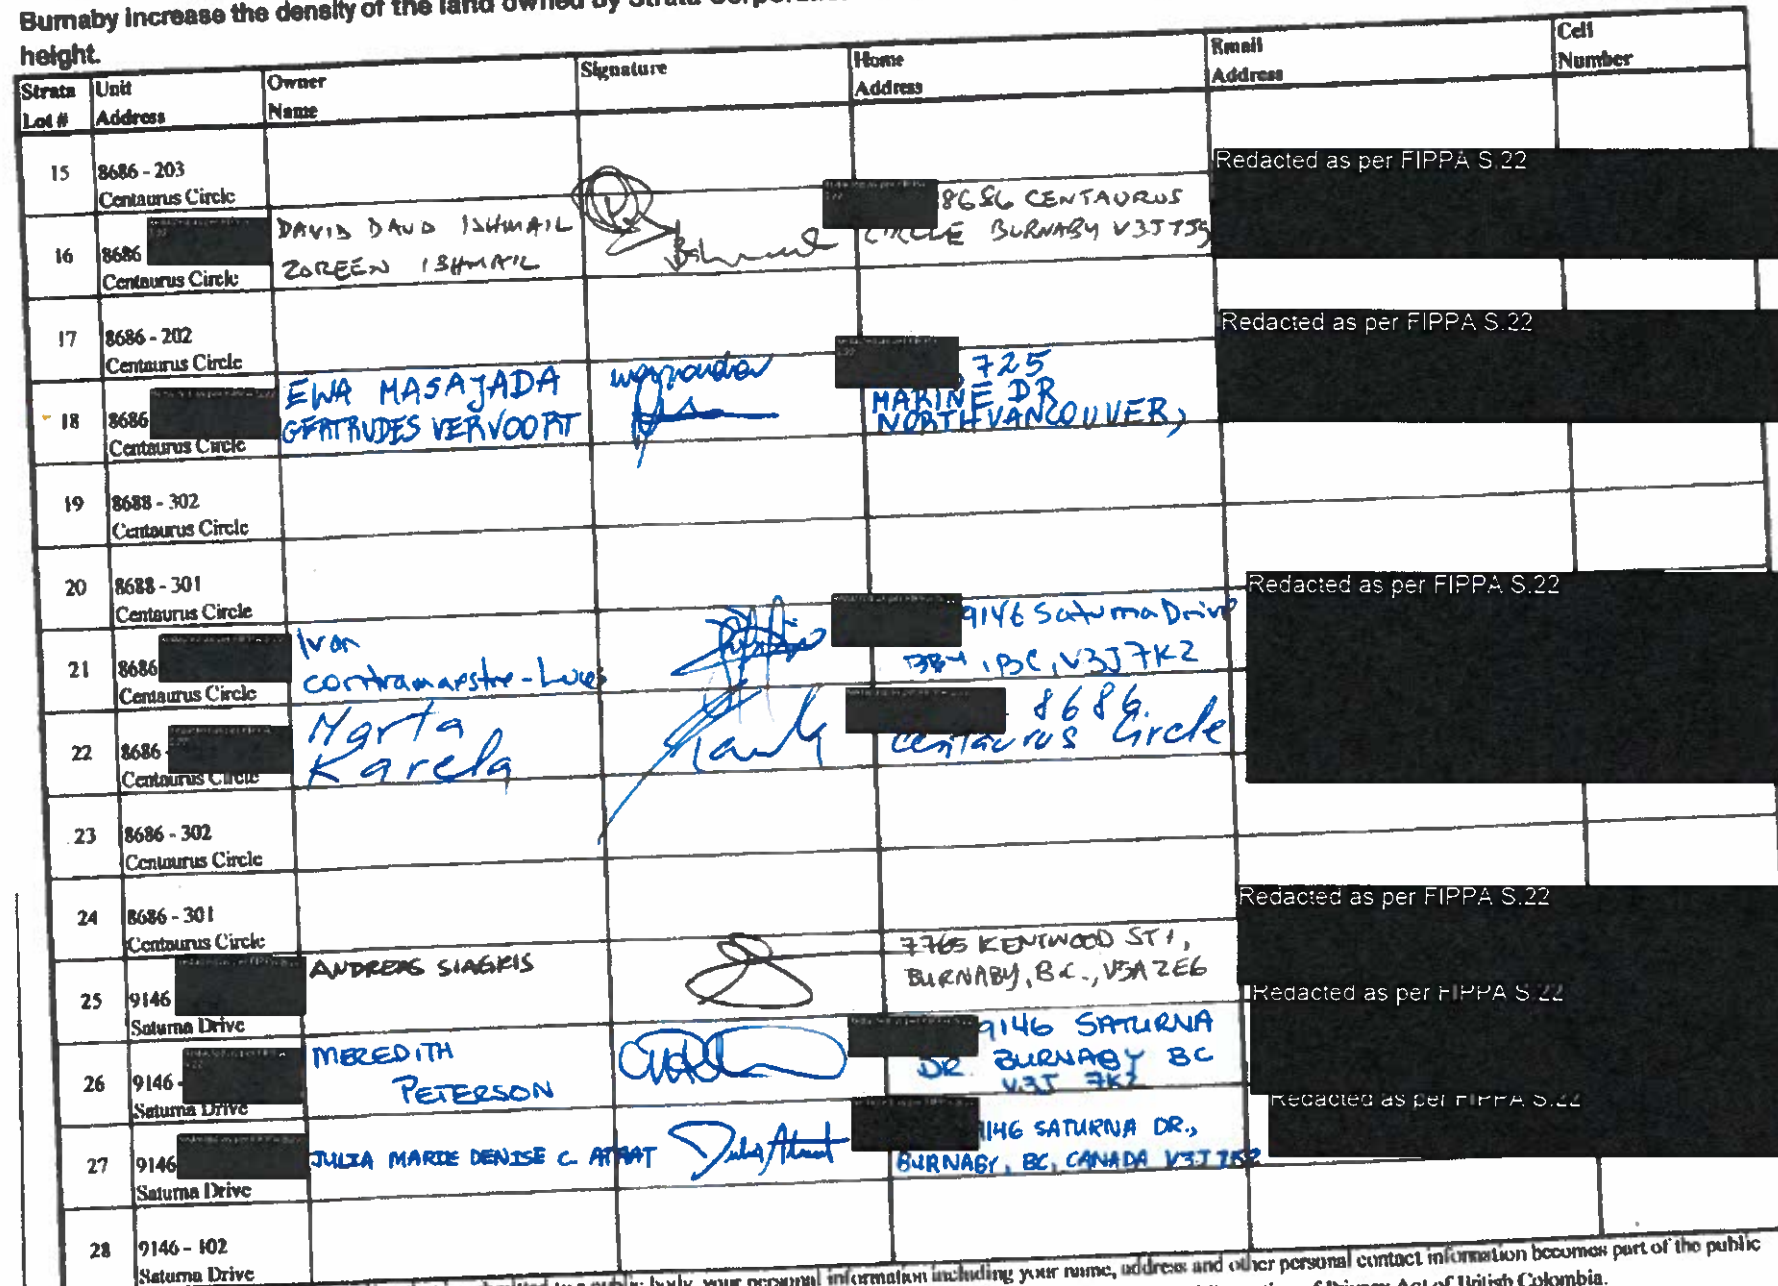 Burnaby increase the density of the land owned by Strata
height.
Strata Lot # Unit Address Owner Name Signature Home Address Email Address Cell Number
15 8686 - 203 Centaurus Circle
Redacted as per FIPPA S.22
16 8686 Centaurus Circle DAVID DAUD ISHMAIL ZOREEN ISHMAIL 8686 CENTAURUS CIRCLE BURNABY V3J 7J9
17 8686 - 202 Centaurus Circle
Redacted as per FIPPA S.22
18 8686 Centaurus Circle EWA MASAJADA GERTRUDES VERVOORT 725 MARINE DR NORTH VANCOUVER,
19 8688 - 302 Centaurus Circle
20 8688 - 301 Centaurus Circle
Redacted as per FIPPA S.22
21 8686 Centaurus Circle Ivan contramaestre-Luces 9146 Saturna Drive BBY, BC, V3J 7K2
22 8686 - Centaurus Circle Marta Karela 8686. Centaurus Circle
23 8686 - 302 Centaurus Circle
24 8686 - 301 Centaurus Circle
Redacted as per FIPPA S.22
25 9146 Saturna Drive ANDREAS SIAGRIS 7765 KENTWOOD ST, BURNABY, B.C., V5A 2E6
Redacted as per FIPPA S.22
26 9146 - Saturna Drive MEREDITH PETERSON 9146 SATURNA DR BURNABY BC V3J 7K2
Redacted as per FIPPA S.22
27 9146 Saturna Drive JULIA MARIE DENISE C. 9146 SATURNA DR., BURNABY, BC, CANADA V3J 7K2
28 9146 - 102 Saturna Drive
public body, your personal information including your name, address and other personal contact information becomes part of the public
of Privacy Act of British Colombia.